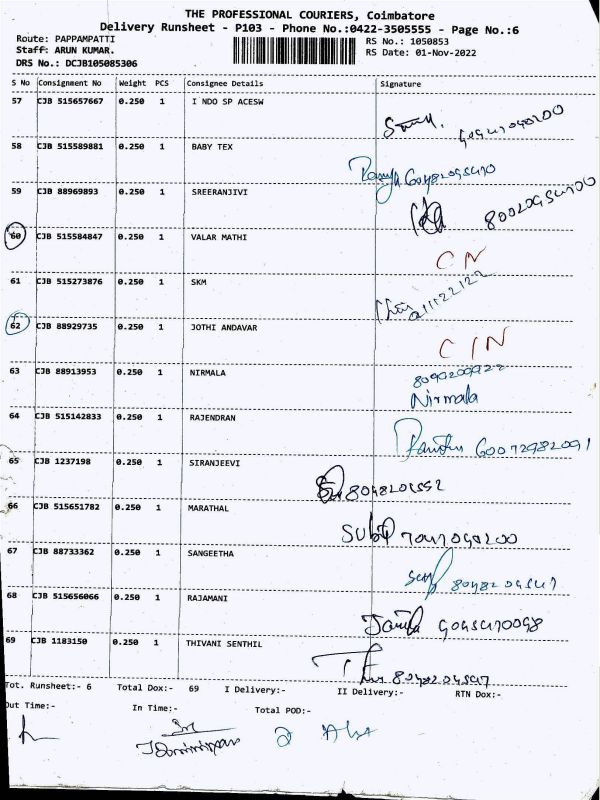 THE PROFESSIONAL COURIERS, Coimbatore
Delivery Runsheet - P103 - Phone No.:0422-3505555 - Page No.:6
Route: PAPPAMPATTI
RS No.: 1050853
Staff: ARUN KUMAR.
RS Date: 01-Nov-2022
DRS No.: DCJB105085306
S No Consignment No Weight PCS Consignee Details Signature
57 CJB 515657667 0.250 1 I NDO SP ACESW
58 CJB 515589881 0.250 1 BABY TEX
59 CJB 88969893 0.250 1 SREERANJIVI
60 CJB 515584847 0.250 1 VALAR MATHI
CN
61 CJB 515273876 0.250 1 SKM
62 CJB 88929735 0.250 1 JOTHI ANDAVAR
C IN
63 CJB 88913953 0.250 1 NIRMALA
Nirmala
64 CJB 515142833 0.250 1 RAJENDRAN
65 CJB 1237198 0.250 1 SIRANJEEVI
66 CJB 515651782 0.250 1 MARATHAL
67 CJB 88733362 0.250 1 SANGEETHA
68 CJB 515656066 0.250 1 RAJAMANI
69 CJB 1183150 0.250 1 THIVANI SENTHIL
Tot. Runsheet:- 6 Total Dox:- 69 I Delivery:- II Delivery:- RTN Dox:-
Out Time:- In Time:- Total POD:-